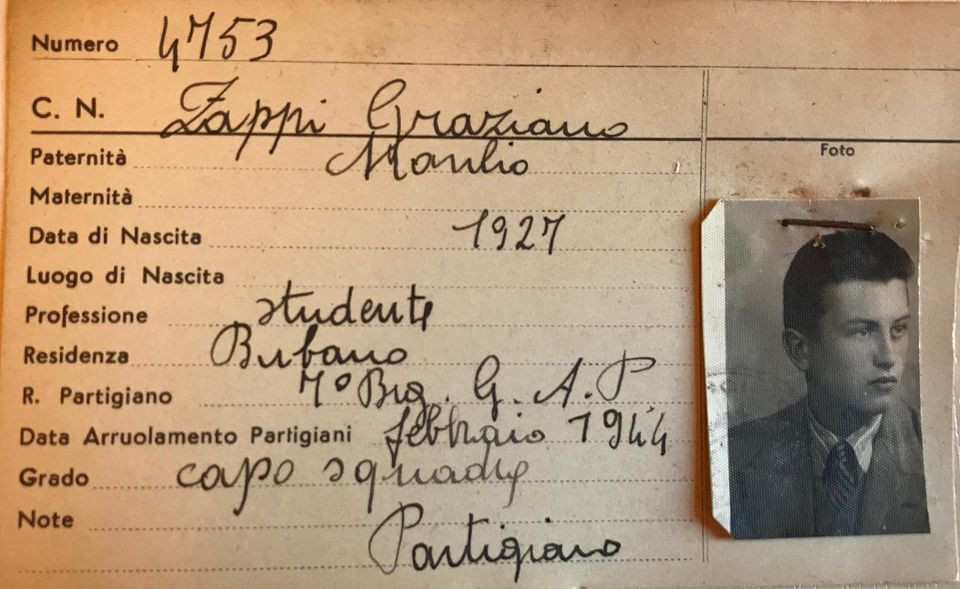 Numero 4753
C. N. Zappi Graziano
Foto
Paternità Manlio
Maternità
Data di Nascita 1927
Luogo di Nascita
Professione studente
Residenza Bubano
R. Partigiano 7° Brg. G. A. P
Data Arruolamento Partigiani febbraio 1944
Grado capo squadra
Note Partigiano